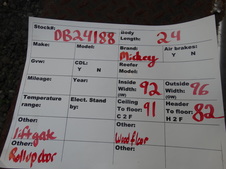 Stock#: DB24188 Body Length: 24
Make: Model: Brand: Mickey Air brakes: Y N
Yvw: CDL: Y N Reefer Model:
Mileage: Year: Inside Width: (IW) 92 Outside Width: (OW) 96
Temperature range: Elect. Stand by: Ceiling To floor: C 2 F 91 Header To floor: H 2 F 82
Other: liftgate Other: Other: Wood floor Other:
Other: Rollup door Other: